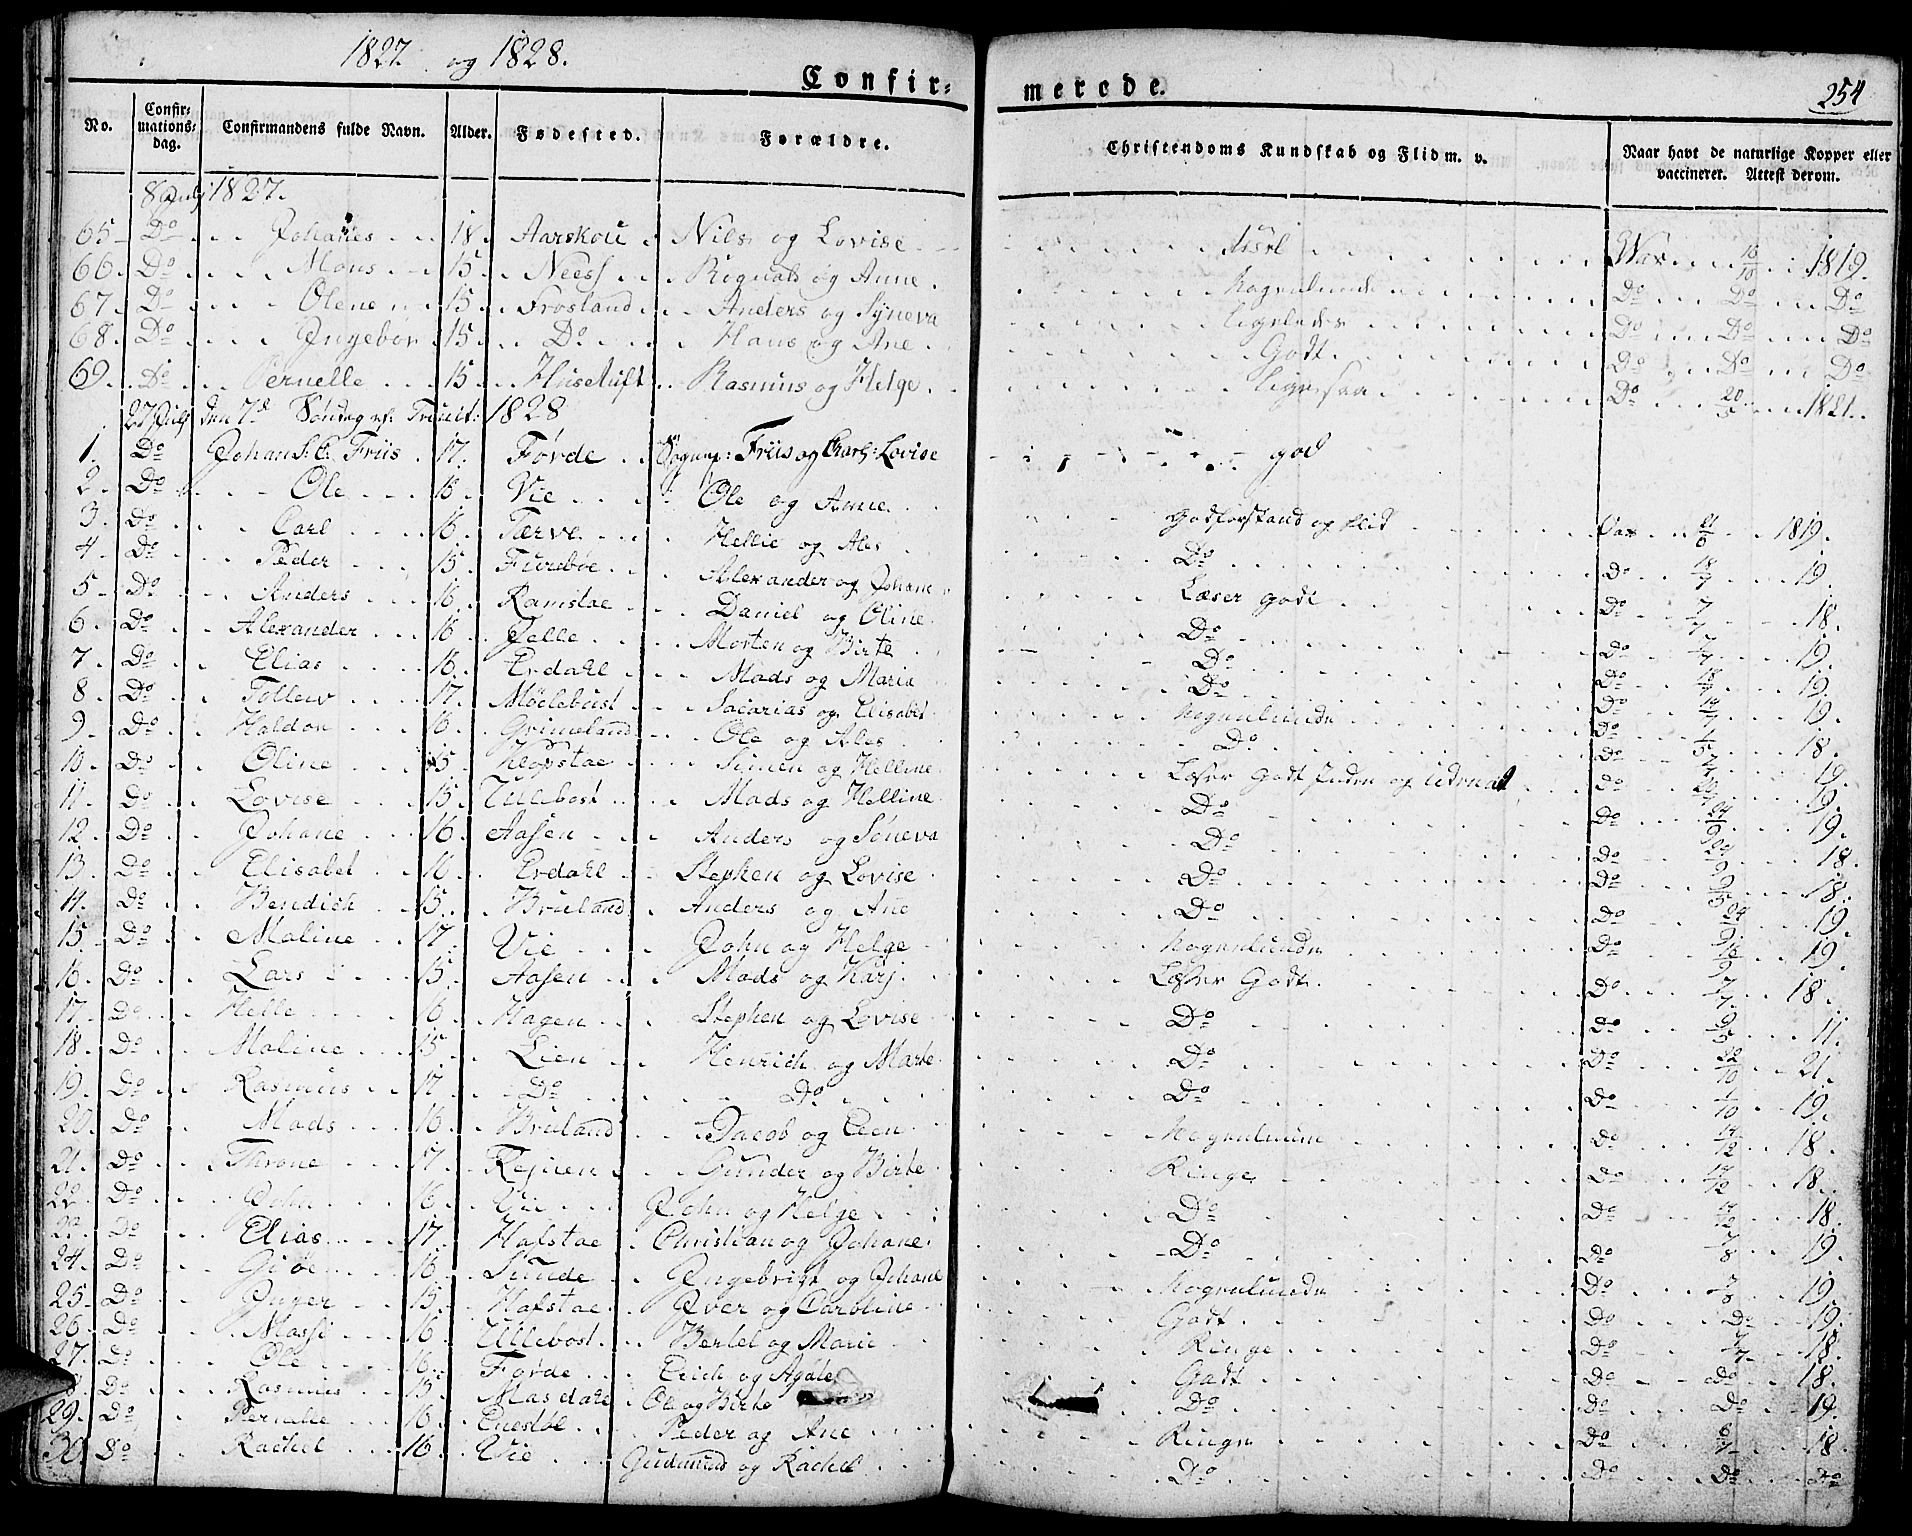 1827 og 1828.
Confir=
merede.
254
No.
Confir=
mations=
dag.
Confirmandens fulde Navn.
Alder.
Fødested.
Forældre.
Christendoms Kundskab og Flid m. v.
Naar havt de naturlige Kopper eller
vaccineret. Attest derom.
8 July 1827.
65 Do Johanes 18. Aarskou Nils og Lovise Vax 1819.
66. Do Mons 15. Neess og Anne. Do Do Do
67. Do Olene 15 Frosland Anders og Syneva ligeledes Do Do Do
68. Do Ingebor 15. Do Hans og Ane Godt Do Do Do
69. Do Pernelle 15 Husetuft Rasmus og Helge ligesaa Do 1821.
27 July den 7d Søndag ef: Trinit: 1828
1. Do Johan S. C. Friis 17. Førde Sognep: Friis og Carh: Lovise god
2. Do Ole 16 Vie Ole og Anne. God forstand og flid Vax 1819.
3. Do Carl 16 Tærve Hellie og Ales Do Do 18/7 19.
4. Do Peder 15 Furebøe Alexander og Johane Læser godt Do 7/7 18.
5. Do Anders 16. Ramstae Daniel og Oline Do Do 7/7 19.
6. Do Alexander 16 Jelle Morten og Birte Do Do 18/7 19.
7. Do Elias 16. Erdahl Mads og Maria Do Do 19.
8. Do Tollew 17. Møclebust Sacarias og Elisabet Do 18.
9. Do Haldor 16 Grimeland Ole og Ales Do Do 19.
10. Do Oline 15 Klopstae Simen og Helline Læser Godt Inden og Udenad Do 19.
11. Do Lovise 15 Ullebost Mads og Helline Do Do 19.
12. Do Johane 16 Aasen Anders og Søneva Do Do 18.
13. Do Elisabet 16 Erdahl Stephen og Lovise Do Do 18.
14. Do Bendich 15. Bruland Anders og Ane Do Do 19.
15. Do Maline 17 Vie John og Helge Do 19.
16. Do Lars 15. Aasen Mads og Karj Læser Godt Do 7/7 18.
17. Do Helle 16 Hagen Stephen og Lovise Do Do 9/5 11.
18. Do Maline 15 Lien Henrich og Marte Do Do 21.
19. Do Rasmus 17 Do Do Do Do 1/10 19.
20. Do Mads 16 Bruland Jacob og Do 14/12 18.
21. Do Throne 17 Gunder og Birte Ringe Do 18.
22. Do John 16. Vie John og Helge Do Do 18.
23. Do Elias 17. Hafstae Christian og Johane Do Do 7/8 19.
24. Do 16. Sunde Ingebrigt og Johane Do 7/8 19.
25. Do Inger 15. Hafstae Iver og Caroline Godt Do Do 19.
26. Do 16. Ullebost Bertel og Marie Ringe Do 7/7 18.
27. Do Ole 16. Førde Erich og Agate Godt Do Do 18.
28. Do Rasmus 15 Masdahl Ole og Birte Do Do Do 19.
29. Do Pernelle 16 Peder og Ane Ringe Do 6/7 18.
30. Do Rachel 16 Vie Gudmund og Rachel Do Do Do Do